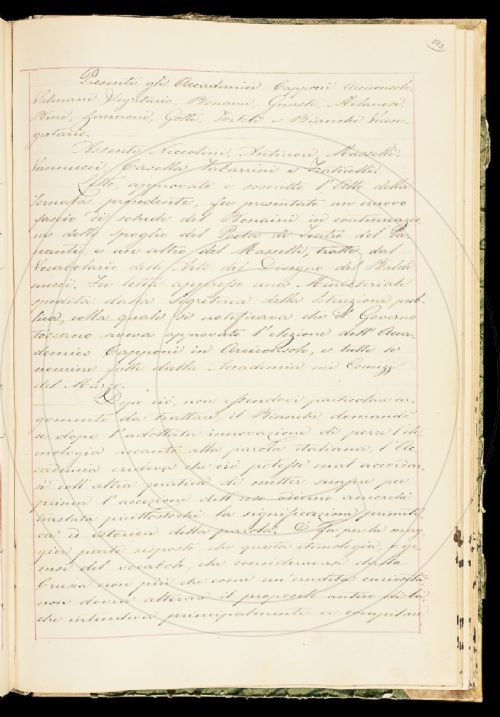 Presenti gli Accademici Capponi Arciconsolo,
Vegetario, Bonaini, Guasti, Milanesi,
Gotti, Tortoli e Bianchi Vicese-
gretario.
Assenti Niccolini, Antinori, Masselli,
Vannucci, Casella, Zaccaroni e Fraticelli.
Letto, approvato e soscritto l'Atto della
tornata precedente, fu presentato un nuovo
fascio di schede del Bonaini in continuazio-
ne dello spoglio del Poeta di Teatro del Pa-
nanti, e un altro del Masselli, tratte dal
Vocabolario dell'Arte del Disegno del Baldi-
nucci. Fu letta appresso una Ministeriale
spedita dalla Segreteria della Istruzione pub-
blica, colla quale si notificava che il Governo
toscano aveva approvato l'elezione dell'Acca-
demico Capponi in Arciconsolo, e tutte le
nomine fatte dalla Accademia nei Comizj
del Marzo.
Dopo ciò, non essendovi particolare ar-
gomento da trattare, il Bianchi domandò
se dopo l'adottata innovazione di porre l'eti-
mologia accanto alla parola italiana, l'Ac-
cademia credeva che ciò potesse mal accordar-
si coll'altra pratica di metter sempre per
prima l'accezione dell'uso odierno ancorché
traslata piuttostoché la significazione primiti-
va e istorica della parola. E fu per la mag-
gior parte risposto che questa etimologia, o ge-
nesi del vocabolo, che consideravasi dalla
Crusca non più che come un'erudita curiosità
non doveva alterare il proposito antico di lei,
che intendeva principalmente a compilare